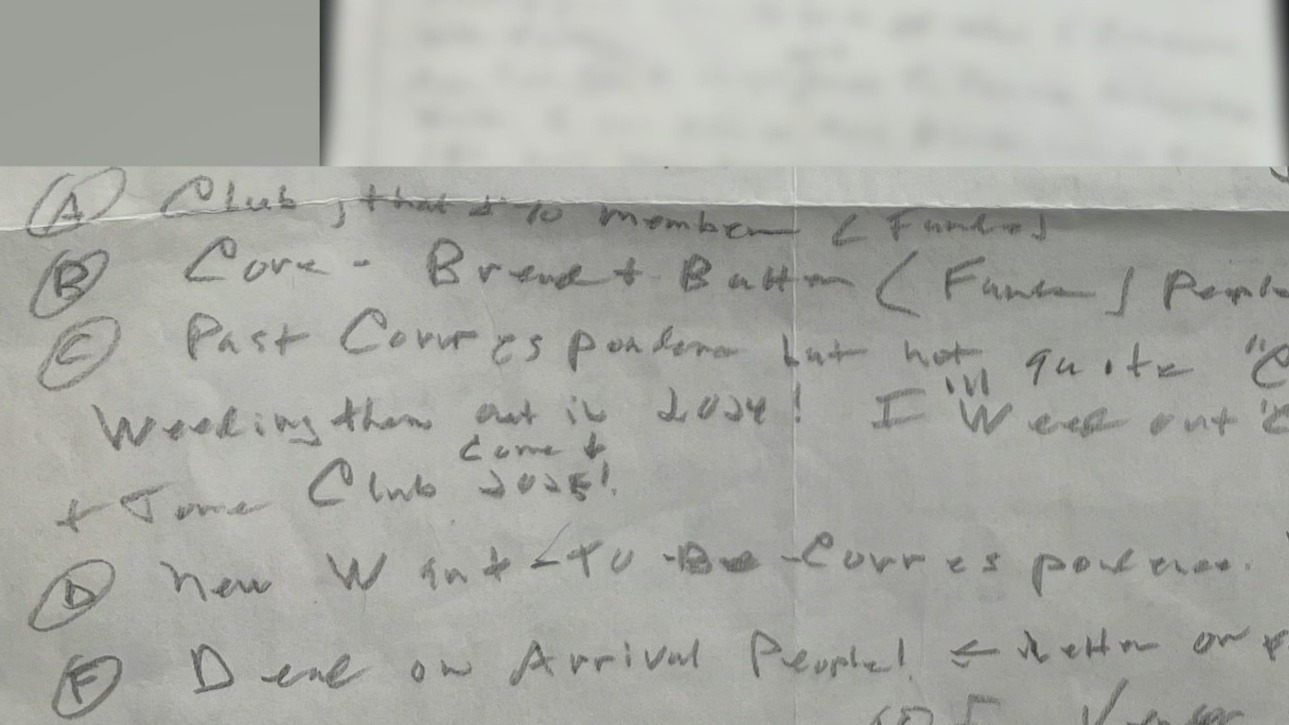 (A) Club, that is 10 member (Funded)
(B) Core - Bread + Butter (Funded) People
(C) Past Correspondence but not quite "C
Weeding them out in 2024! I'll Weed out "C
come +
+ Tome Club 2025!
(D) New Want-To-Be-Correspondence.
(F) Dead on Arrival People! ← Letter or